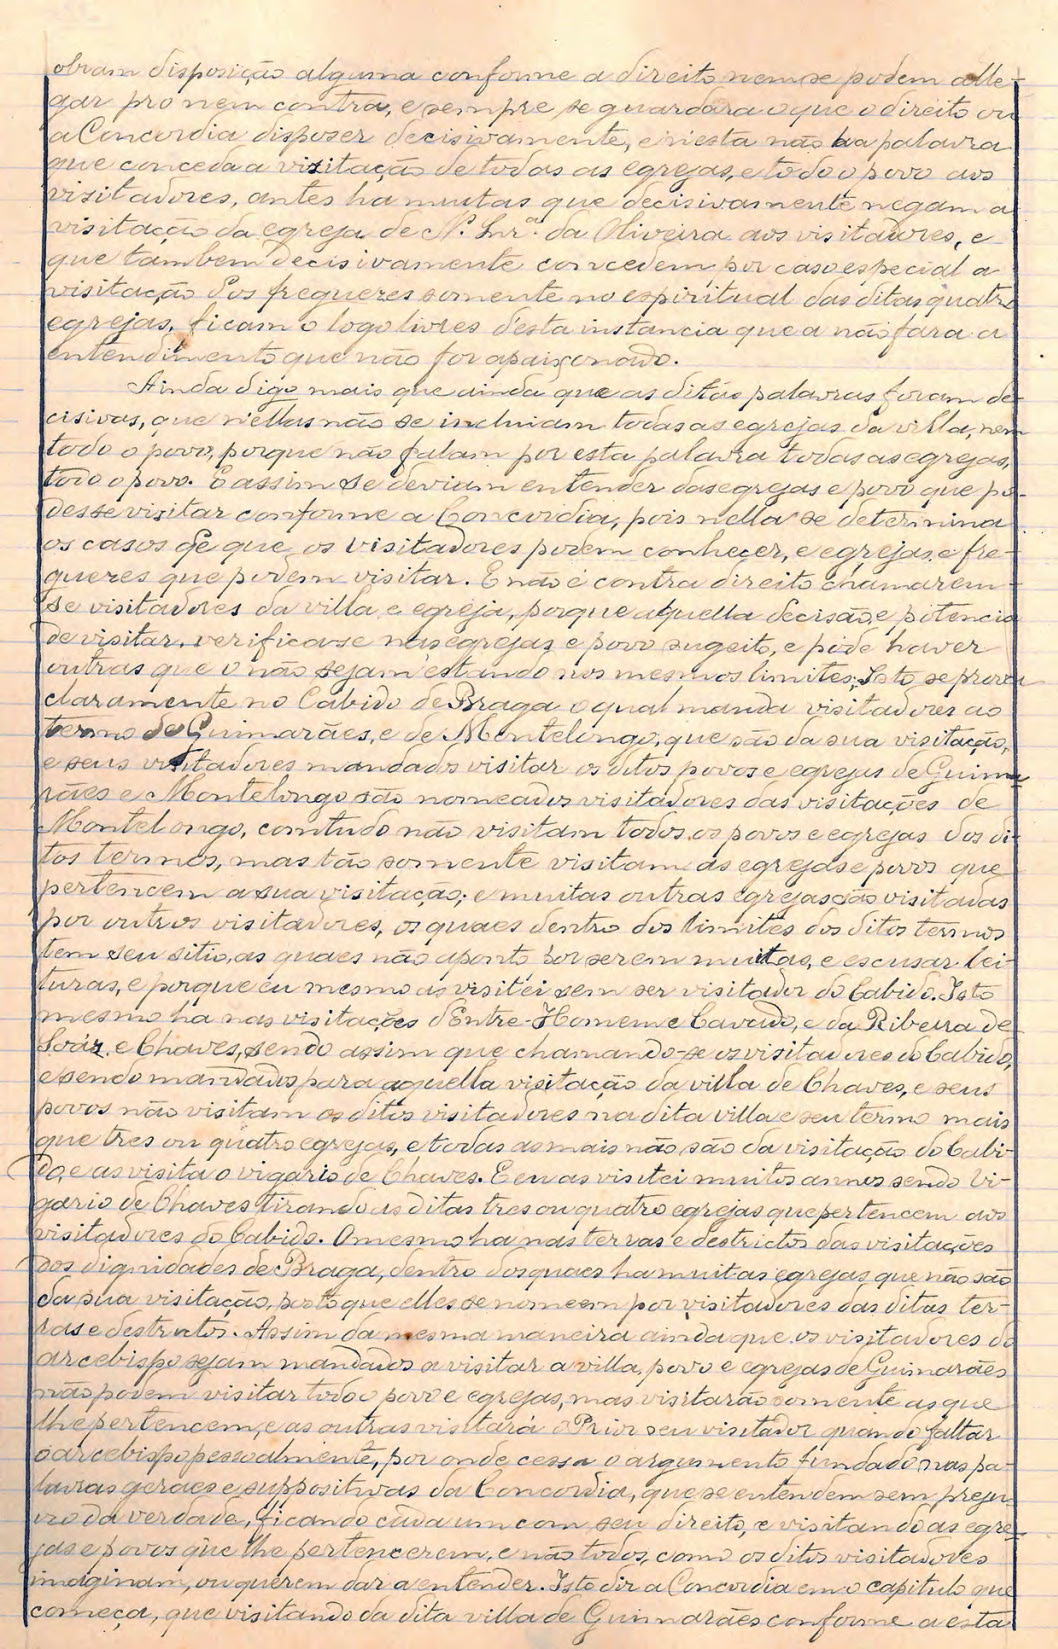 obram disposição alguma conforme a direito nem se podem alle-
gar pro nem contra, e sempre se guardara o que o direito ou
a Concordia disposer decisivamente, e n'esta não ha palavra
que conceda a visitação de todas as egrejas, e todo o povo aos
visitadores, antes ha muitas que decisivamente negam a
visitação da egreja de N. Snr.ª da Oliveira aos visitadores, e
que tambem decisivamente concedem por caso especial a
visitação dos freguezes somente no espiritual das ditas quatro
egrejas, ficam o logo livres d'esta instancia que a não fara a
entendimento que não for apaixonado.
Ainda digo mais que ainda que as ditas palavras foram de-
cisivas, que n'ellas não se incluiam todas as egrejas da villa, nem
todo o povo, porque não falam por esta palavra todas as egrejas,
todo o povo. E assim se deviam entender das egrejas e povo que po-
desse visitar conforme a Concordia, pois nella se determina
os casos de que os visitadores podem conhecer, e egrejas e fre-
guezes que podem visitar. E não é contra direito chamarem-
se visitadores da villa e egreja, porque aquella decisão e potencia
de visitar, verifica-se nas egrejas e povo sugeito, e póde haver
outras que o não sejam estando nos mesmos limites; Isto se prova
claramente no Cabido de Braga o qual manda visitadores ao
termo de Guimarães, e de Montelongo, que são da sua visitação,
e seus visitadores mandados visitar os ditos povos e egrejas de Guima-
rães e Montelongo são nomeados visitadores das visitações de
Montelongo, comtudo não visitam todos os povos e egrejas dos di-
tos termos, mas tão somente visitam as egrejas e povos que
pertencem a sua visitação; e muitas outras egrejas são visitadas
por outros visitadores, os quaes dentro dos limites dos ditos termos
tem seu sitio, as quaes não aponto por serem muitas, e escusar lei-
turas, e porque eu mesmo as visitei sem ser visitador do Cabido. Isto
mesmo ha nas visitações d'Entre-Homem e Cavado, e da Ribeira de
Soáz e Chaves, sendo assim que chamando-se os visitadores do Cabido,
e sendo mandados para aquella visitação da villa de Chaves, e seus
povos não visitam os ditos visitadores na dita villa e seu termo mais
que tres ou quatro egrejas, e todas as mais não são da visitação do Cabi-
do, e as visita o vigario de Chaves. E eu as visitei muitos annos sendo vi-
gario de Chaves tirando as ditas tres ou quatro egrejas que pertencem aos
visitadores do Cabido. O mesmo ha nas terras e destrictos das visitações
dos dignidades de Braga, dentro dos quaes ha muitas egrejas que não são
da sua visitação, posto que elles se nomeem por visitadores das ditas ter-
ras e destrictos. Assim da mesma maneira ainda que os visitadores do
arcebispo sejam mandados a visitar a villa, povo e egrejas de Guimarães
não podem visitar todo o povo e egrejas, mas visitarão somente as que
lhe pertencem, e as outras visitará o Prior seu visitador quando faltar
o arcebispo pessoalmente, por onde cessa o argumento fundado nas pa-
lavras geraes e suppositivas da Concordia, que se entendem sem preju-
izo da verdade, ficando cada um com seu direito, e visitando as egre-
jas e povos que lhe pertencerem, e não todos, como os ditos visitadores
imaginam, ou querem dar a entender. Isto diz a Concordia em o capitulo que
começa, que visitando da dita villa de Guimarães conforme a esta